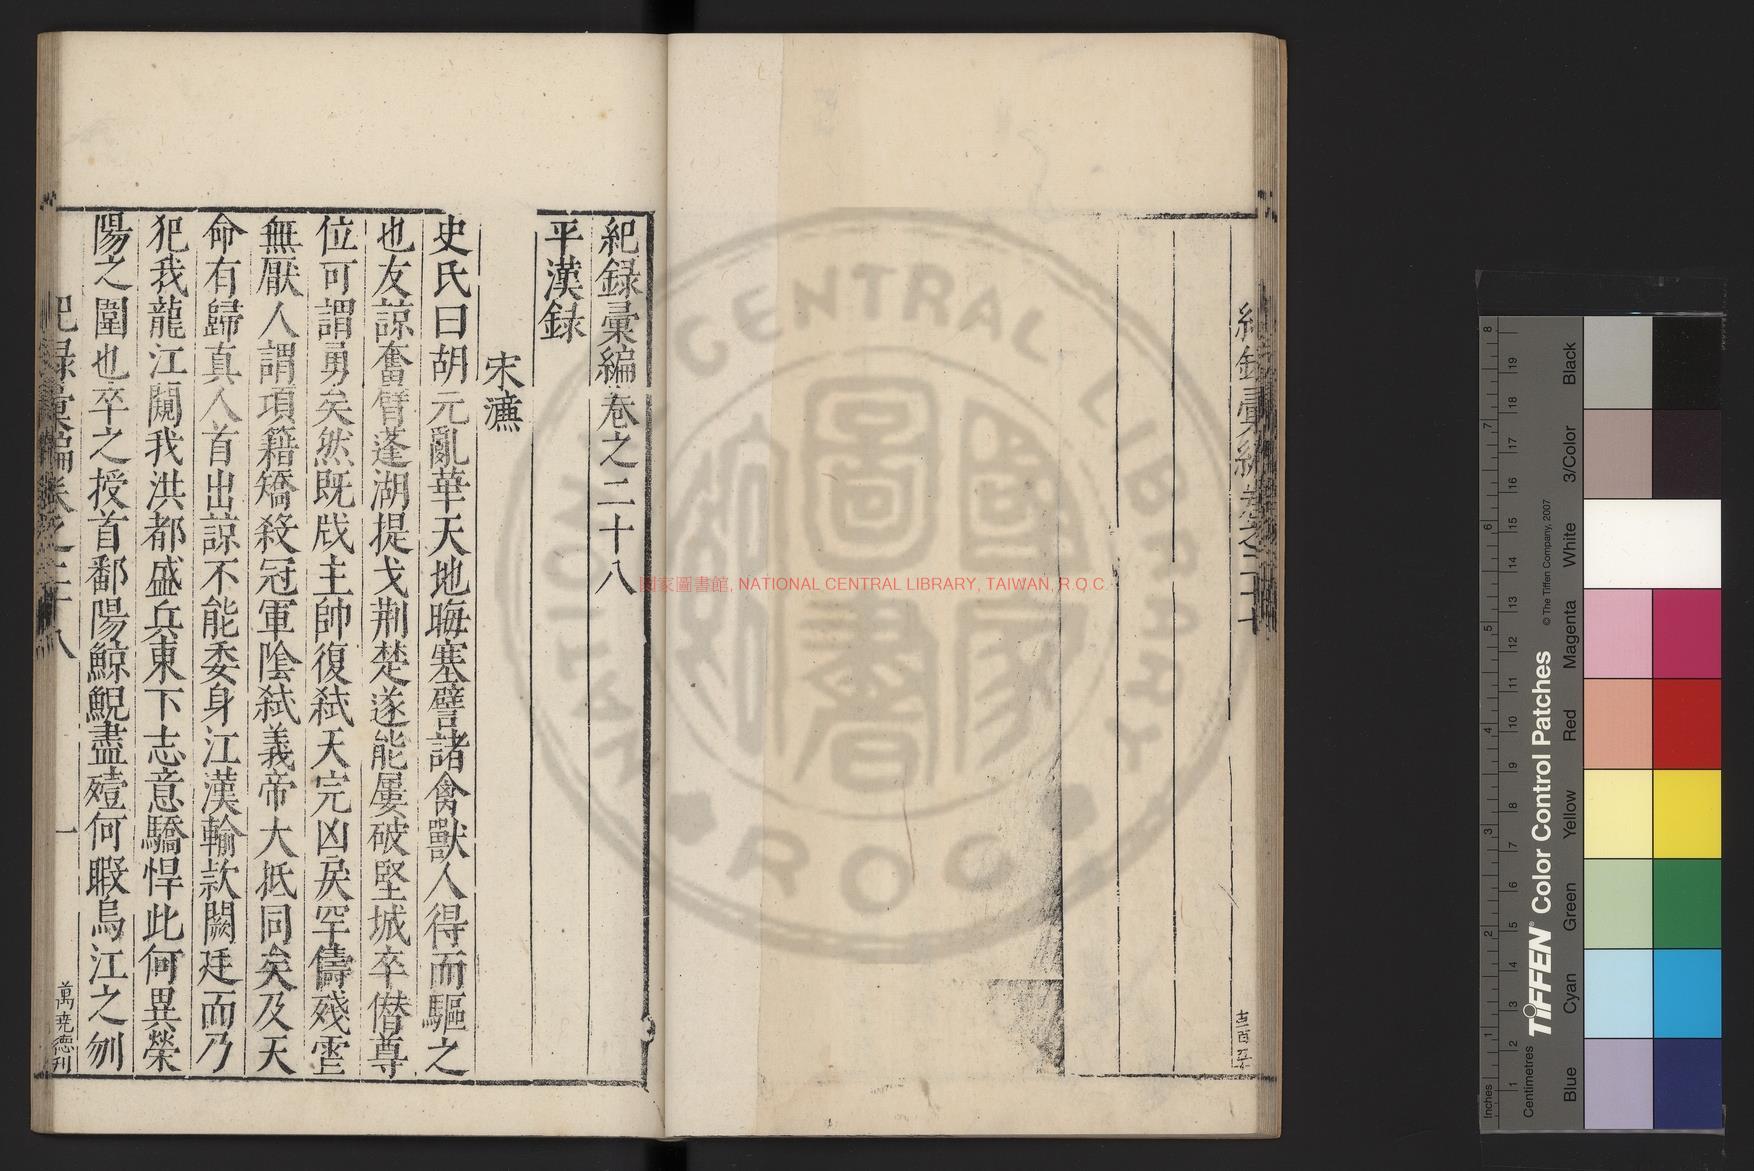 紀録彙編卷之二十八
平漢録
宋濂
史氏曰胡元亂華天地晦塞譬諸禽獸人得而驅之
也友諒奮臂蓬湖提戈荆楚遂能屢破堅城卒僣尊
位可謂勇矣然既戕主帥復弑天完凶戾罕儔殘雲
無厭人謂項籍矯殺冠軍陰弑義帝大抵同矣及天
命有歸真人首出諒不能委身江漢輸款闕廷而乃
犯我龍江闚我洪都盛兵東下志意驕悍此何異滎
陽之圍也卒之授首鄱陽鯨鯢盡殪何暇烏江之刎
紀録彙編卷之二十八
一
萬堯德刊
國家圖書館, NATIONAL CENTRAL LIBRARY, TAIWAN, R.O.C.
NATIONAL CENTRAL LIBRARY
R O C
國家圖書館
TIFFEN Color Control Patches
© The Tiffen Company, 2007
Inches
Centimetres
Blue
Cyan
Green
Yellow
Red
Magenta
White
3/Color
Black